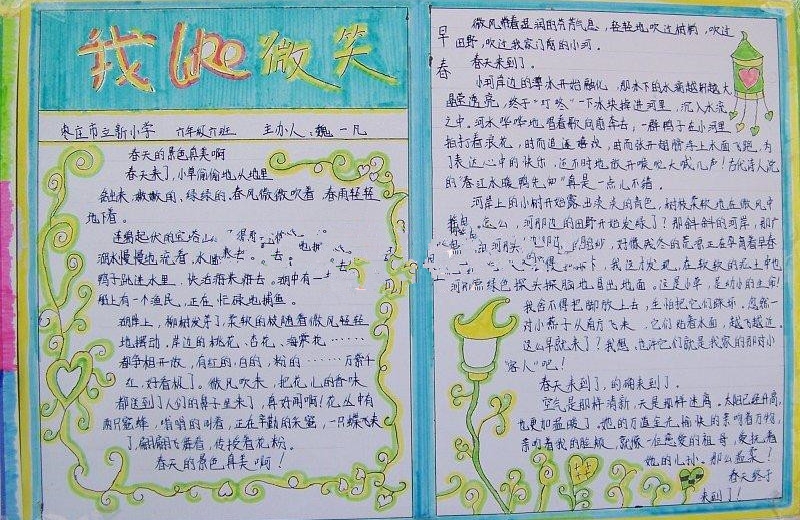 我 Like 微笑
枣庄市立新小学 六年级六班 主办人:魏一凡
春天的景色真美啊
春天来了,小草偷偷地从地里
钻出来,嫩嫩的,绿绿的。春风微微吹着,春雨轻轻
地下着。
连绵起伏的宝塔山。
湖水慢慢地流着,水面
鸭子跳进水里,快活游来游去。湖中有一
船上有一个渔民,正在忙碌地捕鱼。
湖岸上,柳树发芽了,柔软的枝随着微风轻轻
地摆动,岸边的桃花、杏花、海棠花……
都争相开放,有红的、白的、粉的……万紫千
红,好看极了。微风吹来,把花儿的香味
都送到了人们的鼻子里来了,真好闻啊!花丛中有
两只蜜蜂,嗡嗡的叫着,正在辛勤的采蜜,一只蝶飞来
了,翩翩飞舞着,传授着花粉。
春天的景色真美啊!
早春
微风带着湿润的芳草气息,轻轻地吹过树梢,吹过
田野,吹过我家门前的小河。
春天来到了。
小河岸边的薄冰开始融化,那冰下的水滴越积越大,
晶莹透亮,终于“叮咚”一下冰块掉进河里,沉入水流
之中。河水哗哗地唱着歌向南奔去,一群鸭子在小河里
拍打着浪花,时而追逐嬉戏,时而张开翅膀浮上水面飞跑,为
了表达心中的快乐,还不时地放开喉咙大喊几声!古代诗人说
的“春江水暖鸭先知”真是一点儿不错。
河岸上的小树开始露出淡淡的青色,树枝柔软地在微风中
怎么,河那边的田野开始发绿了?那斜斜的河岸,那广
好像残冬的荒凉正在孕育着早春
我这才发现,在软软的泥土中也
绿色探头探脑地冒出地面。这是小草,是幼小的生命!
我舍不得把脚放上去,生怕把它们踩坏,忽然一
对小燕子从南方飞来,它们贴着水面,越飞越近。
这么早就来了?我想,也许它们就是我家的那对小
“客人”吧!
春天来到了,的确来到了。
空气是那样清新,天是那样迷离。太阳已经升高,
也更加温暖了。她的万道金光愉快的亲吻着万物,
亲吻着我的脸颊,就像一位慈爱的祖母,爱抚着
她的儿孙。那么温柔!
春天终于
来到了!